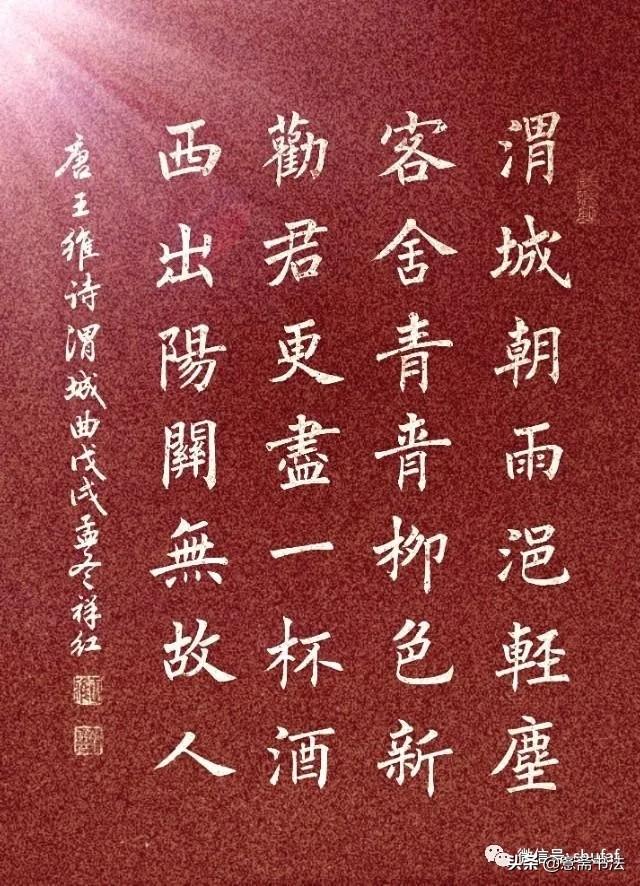 渭城朝雨浥輕塵
客舍青青柳色新
勸君更盡一杯酒
西出陽關無故人
唐王維诗渭城曲戊戌孟冬祥红
微信号: shufaf
头条 @意斋书法